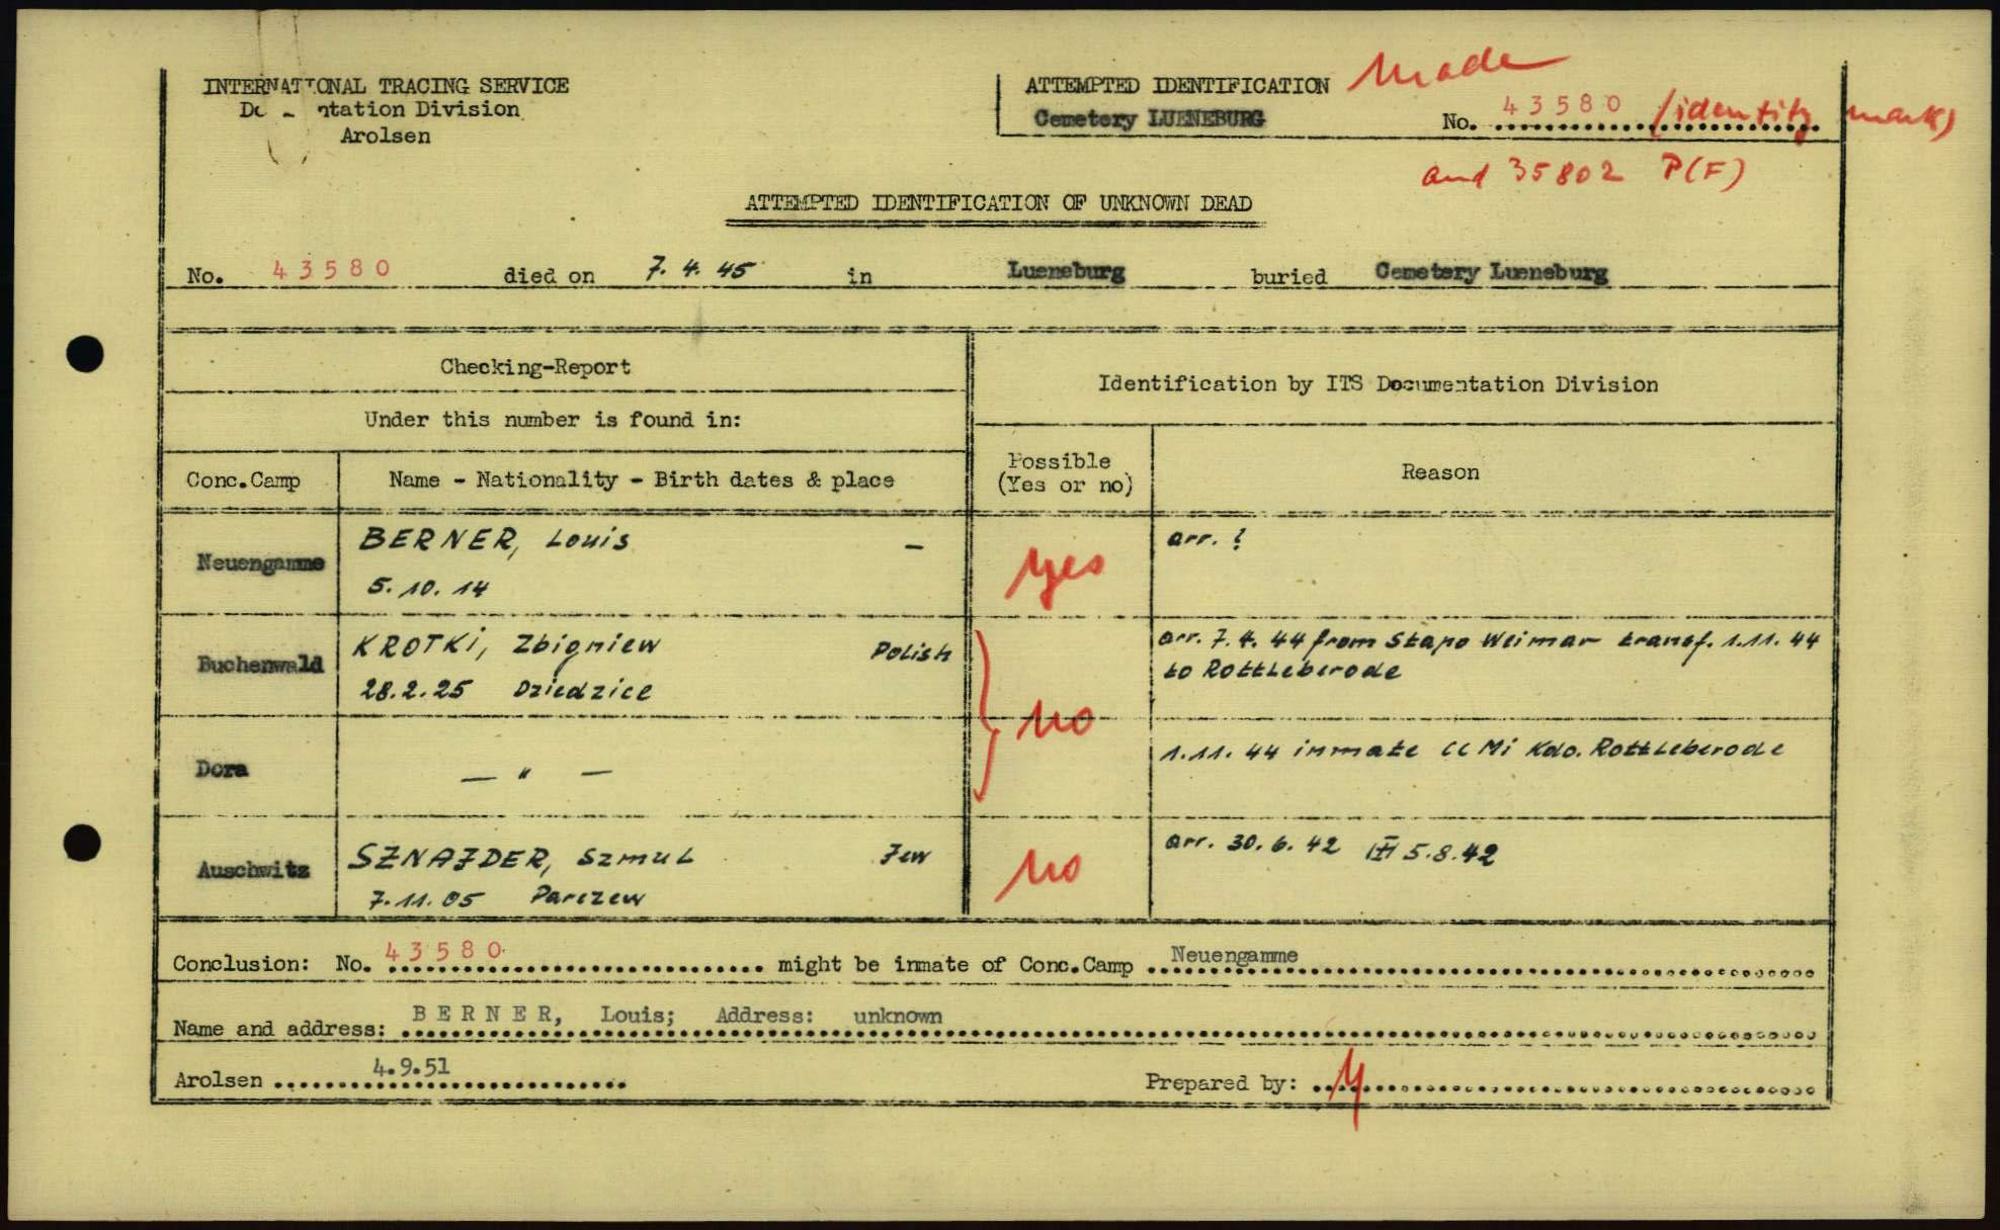 INTERNATIONAL TRACING SERVICE
ntation Division
Arolsen
ATTEMPTED IDENTIFICATION made
Cemetery LUENEBURG
No. 43580 (identity mark)
and 35802 P(F)
ATTEMPTED IDENTIFICATION OF UNKNOWN DEAD
No. 43580 died on 7.4.45 in Lueneburg buried Cemetery Lueneburg
Checking-Report
Identification by ITS Documentation Division
Under this number is found in:
Conc.Camp Name - Nationality - Birth dates & place Possible (Yes or no) Reason
Neuengamme BERNER, Louis - yes arr. ?
5.10.14
Buchenwald KROTKI, Zbigniew Polish no arr. 7.4.44 from Stapo Weimar transf. 1.11.44
28.2.25 Dziedzice to Rottleberode
Dora — " — 1.11.44 inmate CC Mi Kdo. Rottleberode
Auschwitz SZNAJDER, Szmul Jew no arr. 30.6.42 5.8.42
7.11.05 Parczew
Conclusion: No. 43580 might be inmate of Conc.Camp Neuengamme
Name and address: BERNER, Louis; Address: unknown
Arolsen 4.9.51 Prepared by: